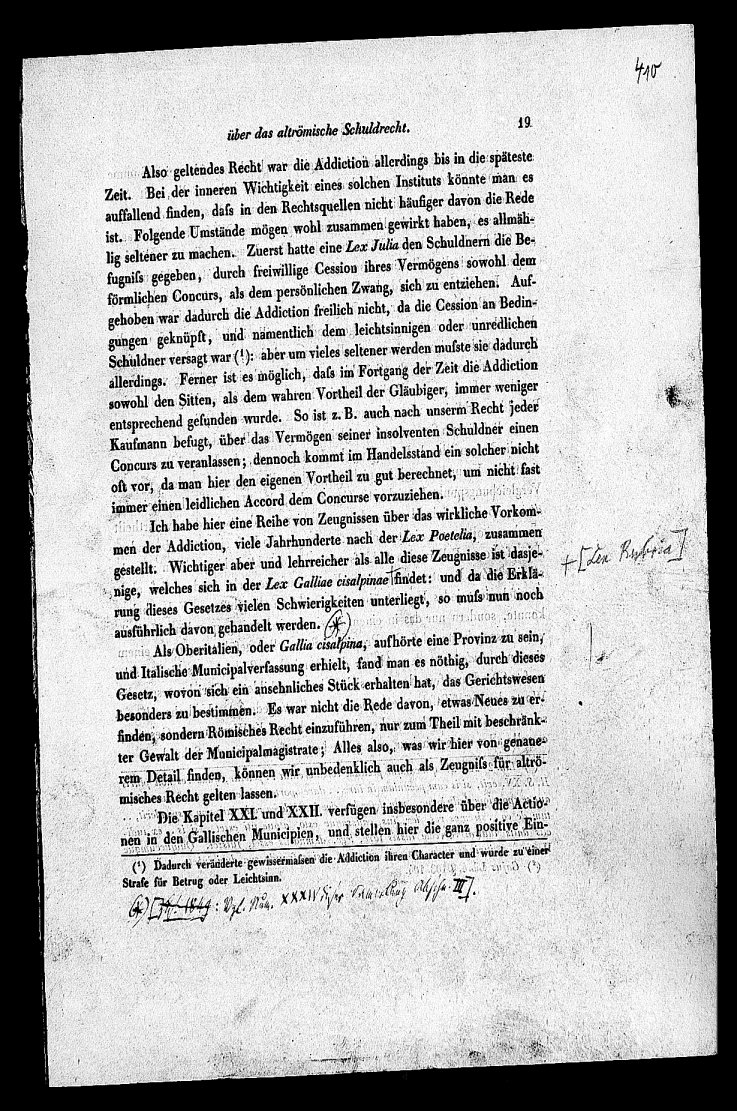 410
über das altrömische Schuldrecht. 19
Also geltendes Recht war die Addiction allerdings bis in die späteste
Zeit. Bei der inneren Wichtigkeit eines solchen Instituts könnte man es
auffallend finden, daſs in den Rechtsquellen nicht häufiger davon die Rede
ist. Folgende Umstände mögen wohl zusammen gewirkt haben, es allmäh-
lig seltener zu machen. Zuerst hatte eine Lex Julia den Schuldnern die Be-
fugniſs gegeben, durch freiwillige Cession ihres Vermögens sowohl dem
förmlichen Concurs, als dem persönlichen Zwang, sich zu entziehen. Auf-
gehoben war dadurch die Addiction freilich nicht, da die Cession an Bedin-
gungen geknüpft, und namentlich dem leichtsinnigen oder unredlichen
Schuldner versagt war (¹): aber um vieles seltener werden muſste sie dadurch
allerdings. Ferner ist es möglich, daſs im Fortgang der Zeit die Addiction
sowohl den Sitten, als dem wahren Vortheil der Gläubiger, immer weniger
entsprechend gefunden wurde. So ist z. B. auch nach unserm Recht jeder
Kaufmann befugt, über das Vermögen seiner insolventen Schuldner einen
Concurs zu veranlassen; dennoch kommt im Handelsstand ein solcher nicht
oft vor, da man hier den eigenen Vortheil zu gut berechnet, um nicht fast
immer einen leidlichen Accord dem Concurse vorzuziehen.
Ich habe hier eine Reihe von Zeugnissen über das wirkliche Vorkom-
men der Addiction, viele Jahrhunderte nach der Lex Poetelia, zusammen
gestellt. Wichtiger aber und lehrreicher als alle diese Zeugnisse ist dasje-
nige, welches sich in der Lex Galliae cisalpinae + findet: und da die Erklä-
+ [Lex Rubria]
rung dieses Gesetzes vielen Schwierigkeiten unterliegt, so muſs nun noch
ausführlich davon gehandelt werden. (*)
Als Oberitalien, oder Gallia cisalpina, aufhörte eine Provinz zu sein,
und Italische Municipalverfassung erhielt, fand man es nöthig, durch dieses
Gesetz, wovon sich ein ansehnliches Stück erhalten hat, das Gerichtswesen
besonders zu bestimmen. Es war nicht die Rede davon, etwas Neues zu er-
finden, sondern Römisches Recht einzuführen, nur zum Theil mit beschränk-
ter Gewalt der Municipalmagistrate; Alles also, was wir hier von genaue-
rem Detail finden, können wir unbedenklich auch als Zeugniſs für altrö-
misches Recht gelten lassen.
Die Kapitel XXI. und XXII. verfügen insbesondere über die Actio-
nen in den Gallischen Municipien, und stellen hier die ganz positive Ein-
(¹) Dadurch veränderte gewissermaſsen die Addiction ihren Character und wurde zu einer
Strafe für Betrug oder Leichtsinn.
(*) [1849: Vgl. Num. XXXIV dieser Sammlung Abschn. III].